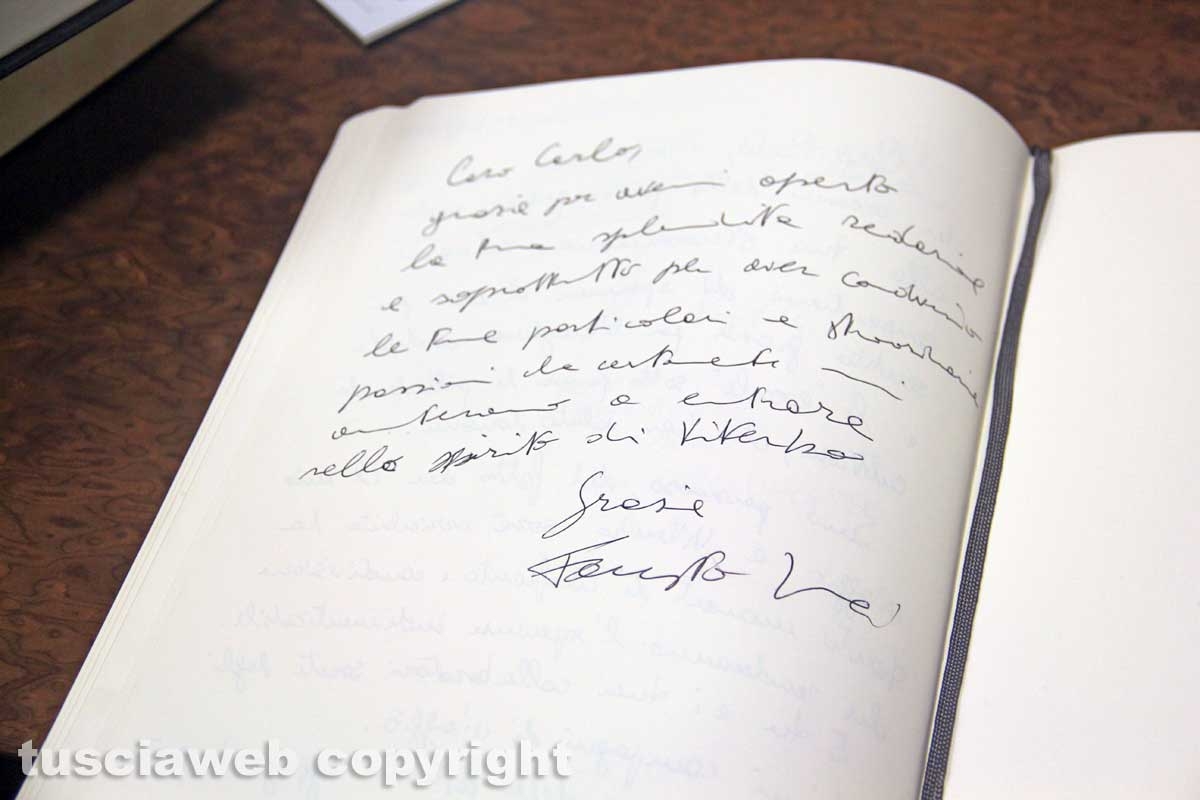 Caro Carlo,
grazie per avermi aperto
la tua splendida residenza
e soprattutto per aver condiviso
le tue particolari e straordinarie
passioni che certamente
aiuteranno a entrare
nello spirito di Viterbo
Grazie
Fausto
tusciaweb copyright